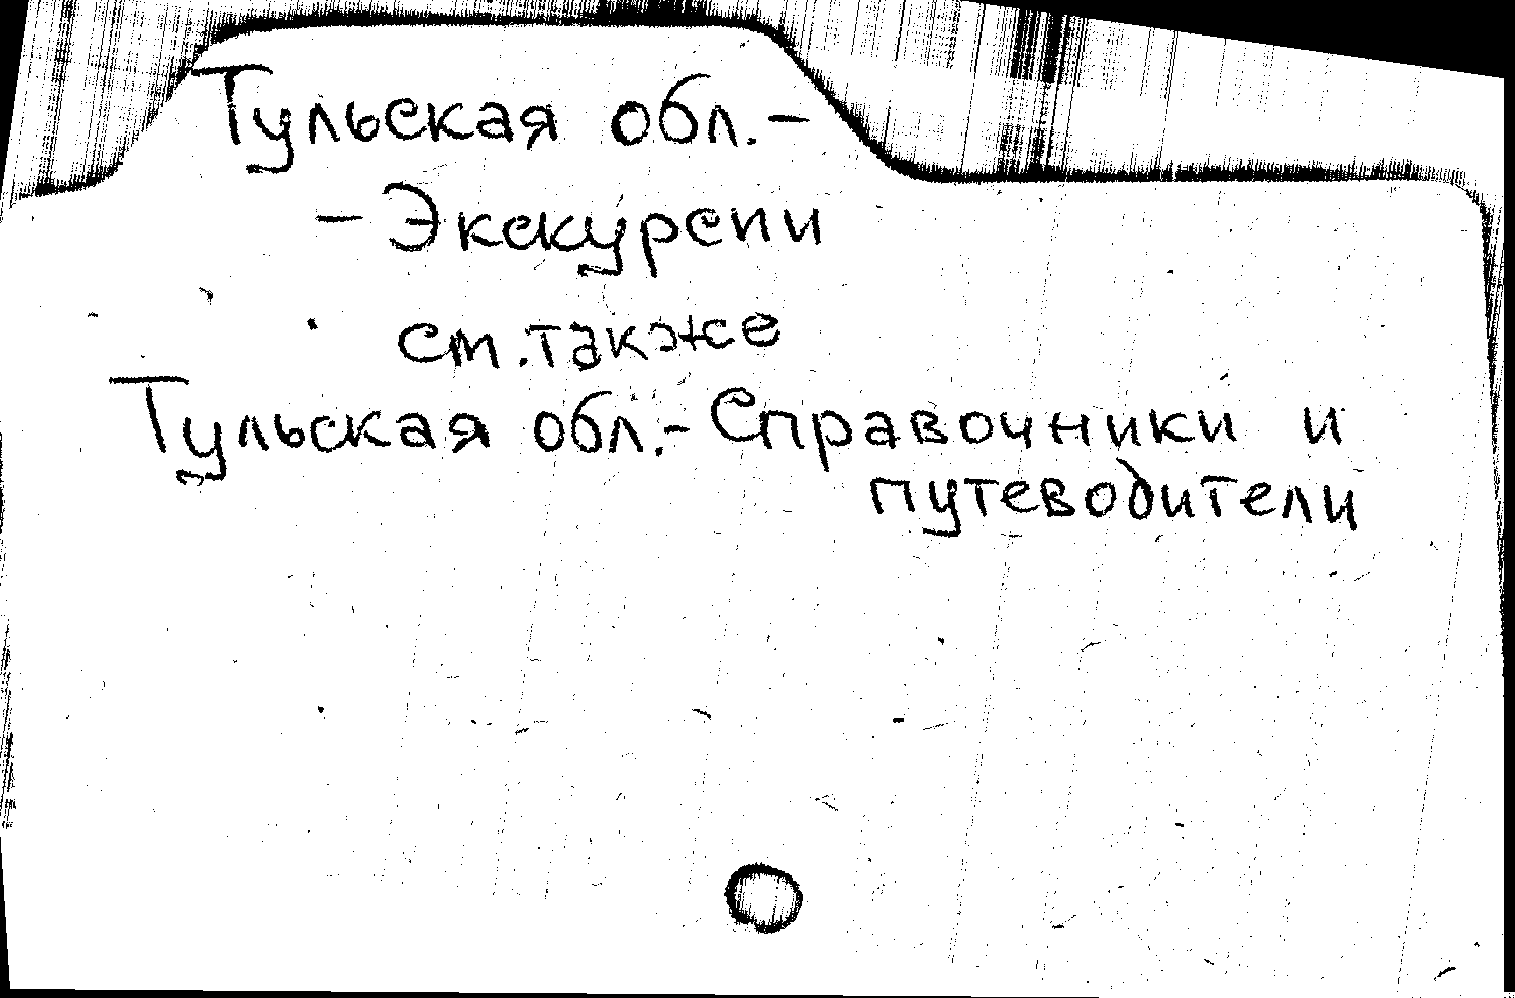 Тульская обл. –
– Экскурсии
см. также
Тульская обл. – Справочники и
путеводители